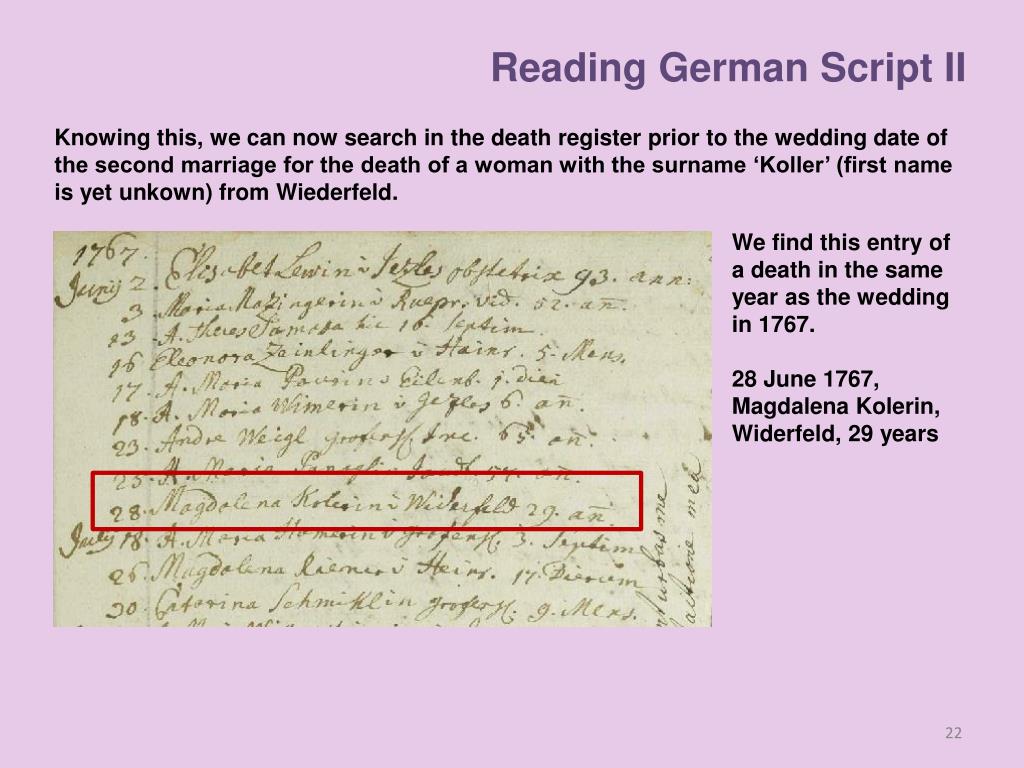 Reading German Script II
Knowing this, we can now search in the death register prior to the wedding date of
the second marriage for the death of a woman with the surname ‘Koller’ (first name
is yet unkown) from Wiederfeld.
1767.
Junÿ 2. Elisabet Lewin obstetrix 93. ann:
3 Maria vid. 52. an̄.
13 A. Theres hic 16. septim.
16 Eleonora Zainlinger v Hainr. 5. Mens.
17. A. Maria 1. diei
18. A. Maria Wimerin v 6. an̄.
23. Andre Weigl 65. an̄.
25. A. Maria an̄.
28. Magdalena Kolerin v Widerfeld 29. an̄.
July 18. A. Maria v 3. Septim
26. Magdalena v Heinr. 17. Dierum
30. Catarina Schmiklin 9. Mens.
We find this entry of
a death in the same
year as the wedding
in 1767.
28 June 1767,
Magdalena Kolerin,
Widerfeld, 29 years
22